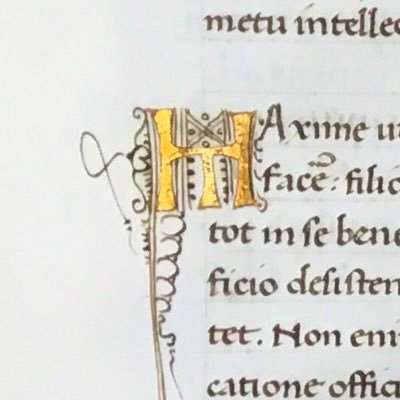 metu intellec
MAxime ut
facē: filio
tot in se bene
ficio desisten
tet. Non eni
catione offici